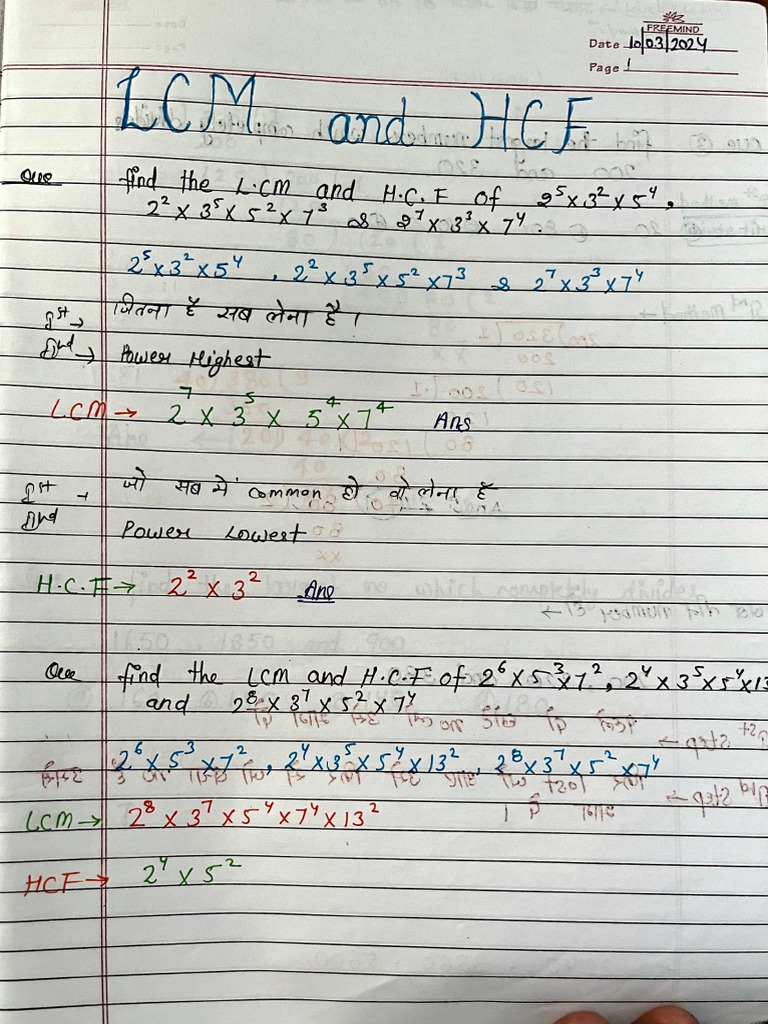 FREEMIND
Date 10/03/2024
Page 1
LCM and HCF
Que find the L.CM and H.C.F of 2⁵×3²×5⁴,
2²×3⁵×5²×7³ & 2⁷×3³×7⁴.
2⁵×3²×5⁴, 2²×3⁵×5²×7³ & 2⁷×3³×7⁴
Ist → जितना है सब लेना है।
IInd → Power Highest
LCM → 2⁷ × 3⁵ × 5⁴ × 7⁴ Ans
Ist → जो सब में common हो वो लेना है
IInd Power Lowest
H.C.F → 2² × 3² Ans
Que find the LCM and H.C.F of 2⁶×5³×7², 2⁴×3⁵×5⁴×13
and 2⁸×3⁷×5²×7⁴
2⁶×5³×7², 2⁴×3⁵×5⁴×13², 2⁸×3⁷×5²×7⁴
LCM → 2⁸ × 3⁷ × 5⁴ × 7⁴ × 13²
HCF → 2⁴ × 5²